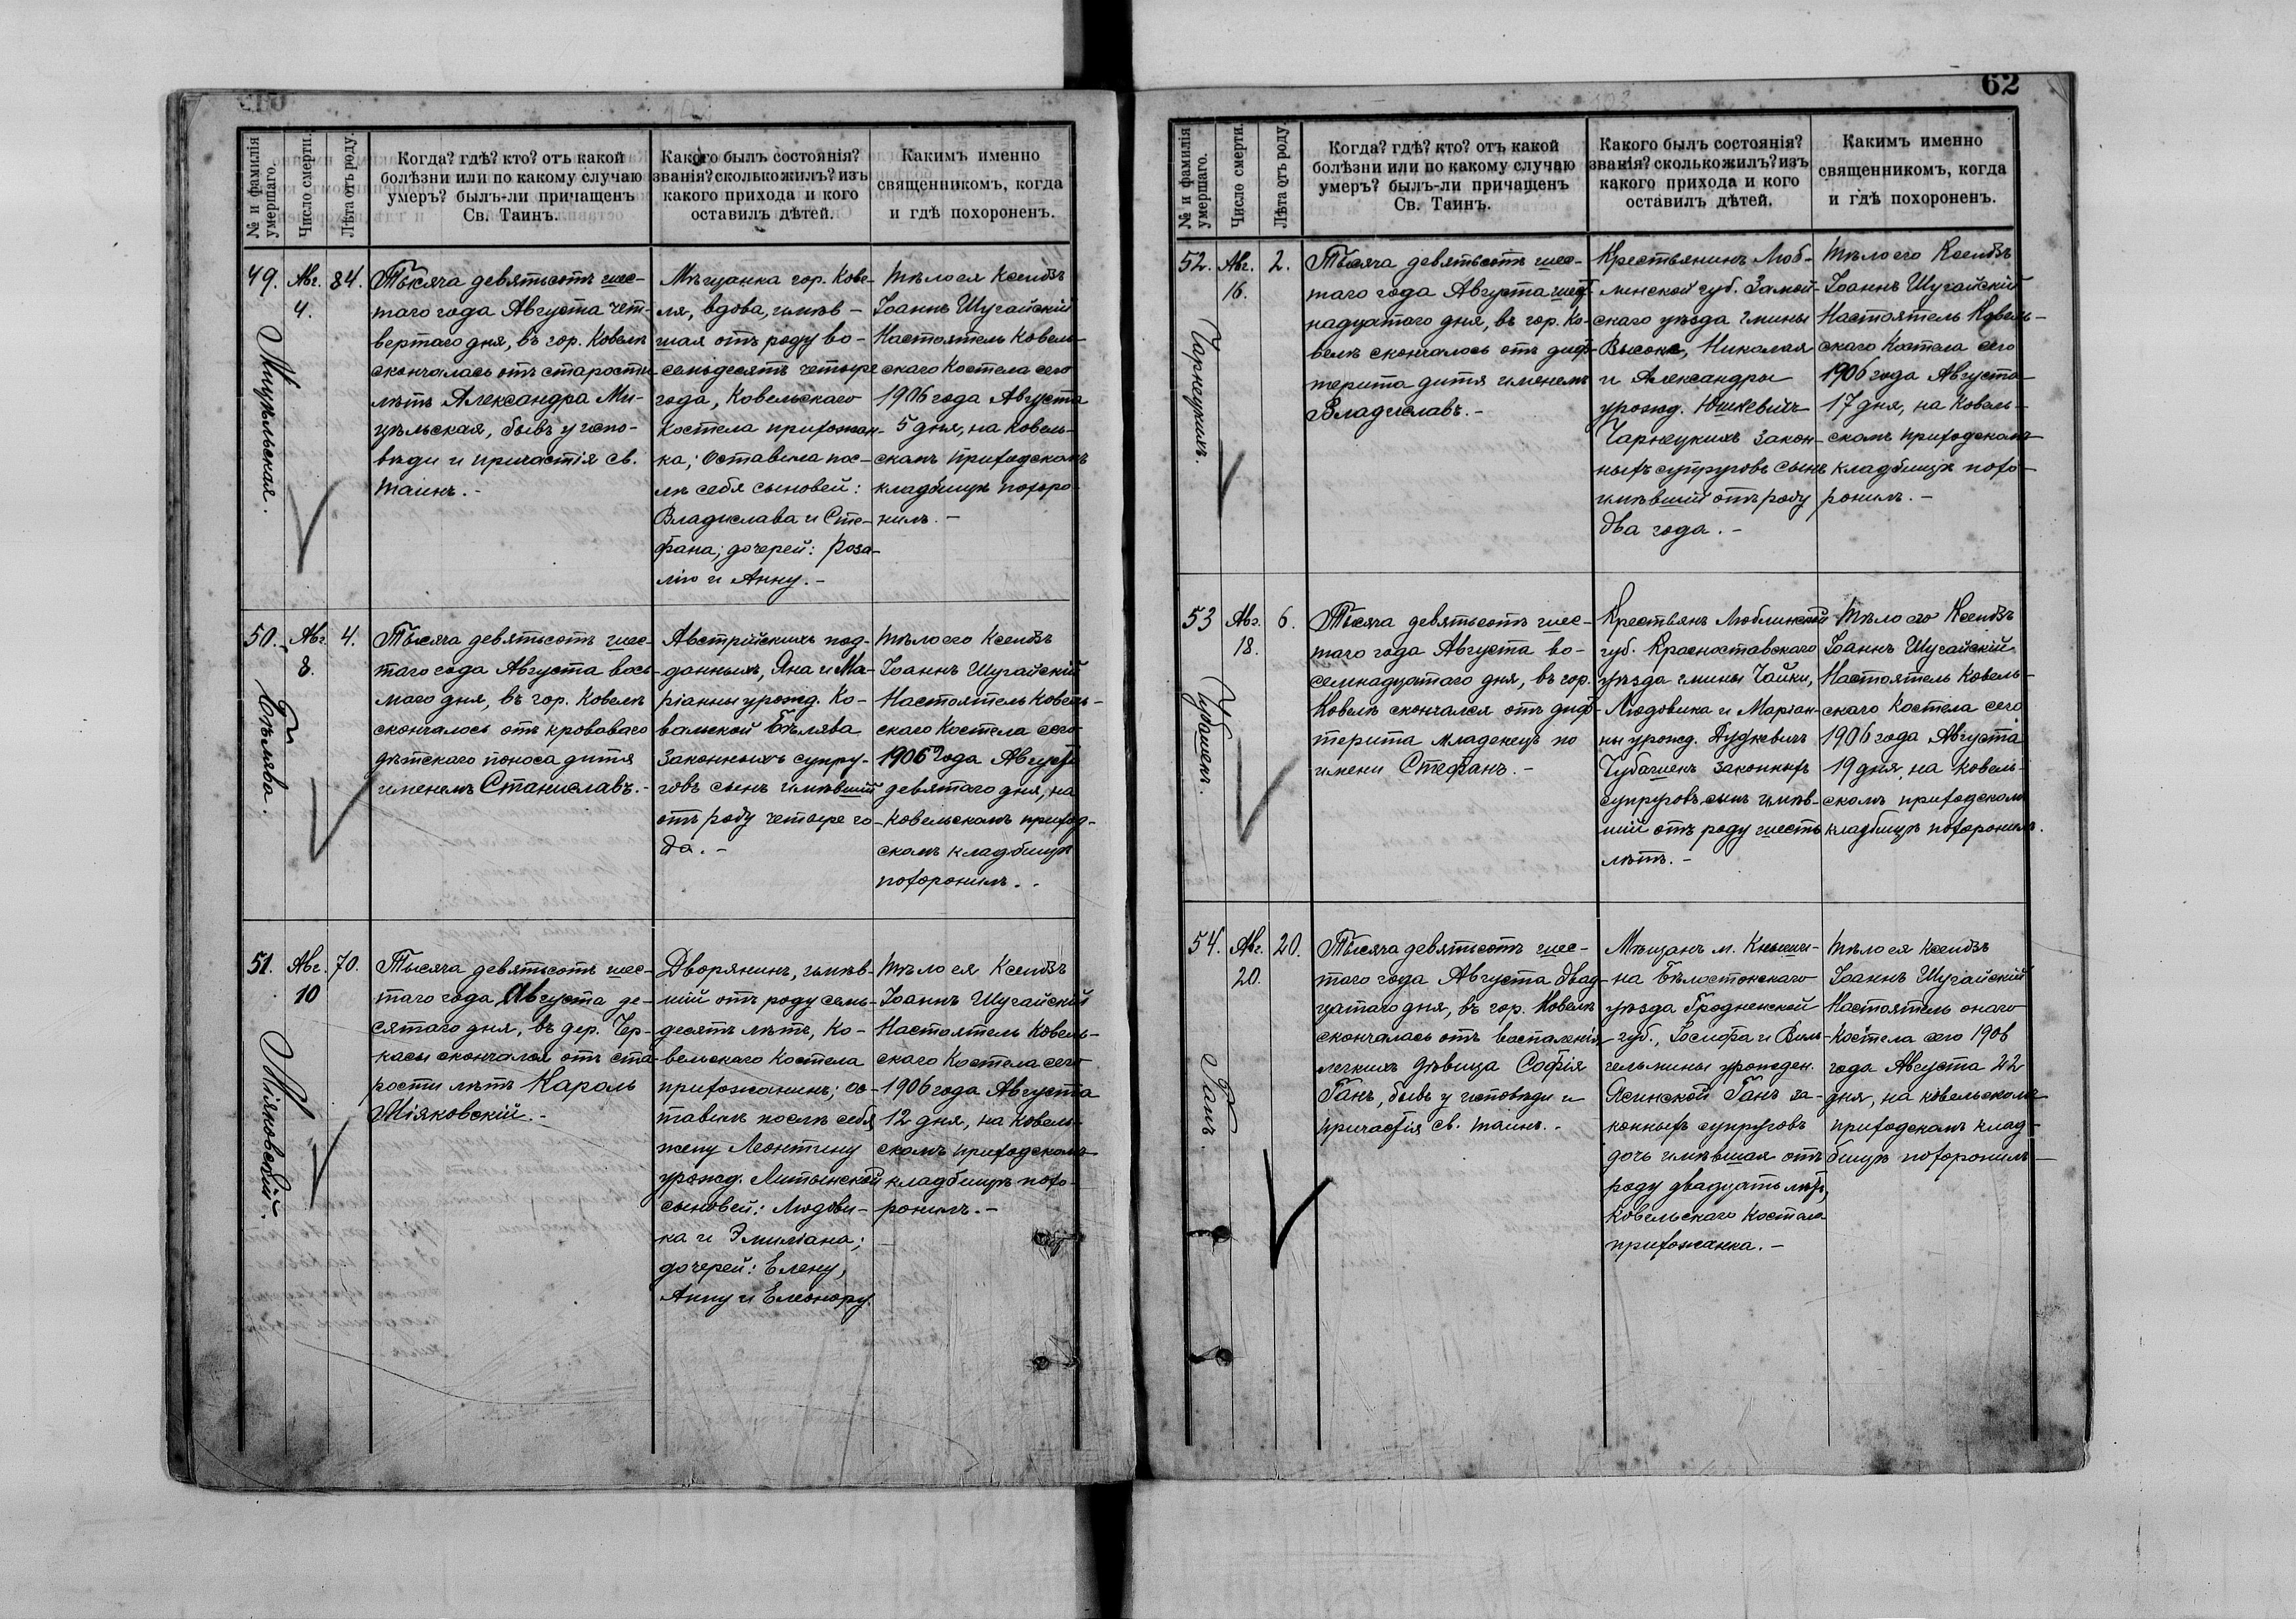 № и фамилія умершаго.
Число смерти.
Лѣта отъ роду.
Когда? гдѣ? кто? отъ какой
болѣзни или по какому случаю
умеръ? былъ-ли причащенъ
Св. Таинъ.
Какого былъ состоянія?
званія? сколько жилъ? изъ
какого прихода и кого
оставилъ дѣтей.
Каким­ъ именно
священникомъ, когда
и гдѣ похороненъ.
49.
Мицѣльская.
Авг.
4.
84.
Тысяча девятьсотъ шес-
таго года Августа чет-
вертаго дня, въ гор. Ковелѣ
скончалась отъ старости
лѣтъ Александра Ми-
цѣльская, бывъ у испо-
вѣди и причастія св.
таинъ.-
Мѣщанка гор. Кове-
ля, вдова, имѣв-
шая отъ роду во-
семьдесятъ четыре
года, Ковельскаго
костела прихожан-
ка; оставила пос-
лѣ себя сыновей:
Владислава и Сте-
фана; дочерей: Роза-
лію и Анну.-
Тѣло ея Ксендзъ
Іоаннъ Шугайскій
Настоятель Ковель-
скаго Костела сего
1906 года Августа
5 дня, на Ковель-
скомъ приходскомъ
кладбищѣ похоро-
нилъ.-
50.
Бѣлява.
Авг.
8.
4.
Тысяча девятьсотъ шес-
таго года Августа вось-
маго дня, въ гор. Ковелѣ
скончалось отъ кроваваго
дѣтскаго поноса дитя
именемъ Станиславъ.-
Австрійскихъ под-
данныхъ, Яна и Ма-
ріанны урожд. Ко-
вальской Бѣлява
законныхъ супру-
говъ сынъ имѣвшій
отъ роду четыре го-
да.-
Тѣло его Ксендзъ
Іоаннъ Шугайскій
Настоятель Ковель-
скаго Костела сего
1906 года Августа
девятаго дня, на
Ковельскомъ приход-
скомъ кладбищѣ
похоронилъ.-
51.
Міяковскій.
Авг.
10
70.
Тысяча девятьсотъ шес-
таго года Августа де-
сятаго дня, въ дер. Чер-
касы скончался отъ ста-
рости лѣтъ Кароль
Міяковскій.-
Дворянинъ, имѣв-
шій отъ роду семь-
десятъ лѣтъ, Ко-
вельскаго Костела
прихожанинъ; ос-
тавилъ послѣ себя
жену Леонтину
урожд. Литынской
сыновей: Людови-
ка и Эмиліана;
дочерей: Елену,
Анну и Елеонору.
Тѣло ея Ксендзъ
Іоаннъ Шугайскій
Настоятель Ковель-
скаго Костела сего
1906 года Августа
12 дня, на Ковель-
скомъ приходскомъ
кладбищѣ похо-
ронилъ.-
62
№ и фамилія умершаго.
Число смерти.
Лѣта отъ роду.
Когда? гдѣ? кто? отъ какой
болѣзни или по какому случаю
умеръ? былъ-ли причащенъ
Св. Таинъ.
Какого былъ состоянія?
званія? сколько жилъ? изъ
какого прихода и кого
оставилъ дѣтей.
Какимъ именно
священникомъ, когда
и гдѣ похороненъ.
52.
Чарнецкихъ.
Авг.
16.
2.
Тысяча девятьсотъ шес-
таго года Августа шест-
надцатаго дня, въ гор. Ко-
велѣ скончалось отъ диф-
терита дитя именемъ
Владиславъ.-
Крестьянинъ Люб-
линской губ. Замой-
скаго уѣзда гмины
Высоке, Николая
и Александры
урожд. Юшкевичъ
Чарнецкихъ закон-
ныхъ супруговъ сынъ
имѣвшій отъ роду
два года.-
Тѣло его Ксендзъ
Іоаннъ Шугайскій
Настоятель Ковель-
скаго Костела сего
1906 года Августа
17 дня, на Ковель-
скомъ приходскомъ
кладбищѣ похо-
ронилъ.-
53
Чубашекъ.
Авг.
18.
6.
Тысяча девятьсотъ шес-
таго года Августа во-
семнадцатаго дня, въ гор.
Ковелѣ скончался отъ диф-
терита младенецъ по
имени Стефанъ.-
Крестьянъ Люблинской
губ. Красноставскаго
уѣзда гмины Чайки,
Людовика и Маріан-
ны урожд. Дудкевичъ
Чубашекъ законныхъ
супруговъ сынъ имѣв-
шій отъ роду шесть
лѣтъ.-
Тѣло его Ксендзъ
Іоаннъ Шугайскій
Настоятель Ковель-
скаго Костела сего
1906 года Августа
19 дня, на Ковель-
скомъ приходскомъ
кладбищѣ похоронилъ.
54.
Ганъ.
Авг.
20.
20.
Тысяча девятьсотъ шес-
таго года Августа двад-
цатаго дня, въ гор. Ковелѣ
скончалась отъ воспаленія
легкихъ дѣвица Софія
Ганъ, бывъ у исповѣди и
причастія св. таинъ.-
Мѣщанъ м. Кныши-
на Бѣлостокскаго
уѣзда Гродненской
губ., Іосифа и Виль-
гельмины урожден.
Ясинской Ганъ за-
конныхъ супруговъ
дочь имѣвшая отъ
роду двадцать лѣтъ,
Ковельскаго Костела
прихожанка.-
Тѣло ея Ксендзъ
Іоаннъ Шугайскій
Настоятель онаго
Костела сего 1906
года Августа 22
дня, на Ковельскомъ
приходскомъ клад-
бищѣ похоронилъ-